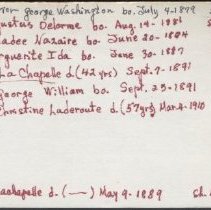 tor George Washington bo. July 4-1879
ustus Delorme bo. Aug. 14-1881
abee Nazaire bo. June 20-1884
rguerite Ida bo. June 30-1887
La Chapelle d. (42 yrs) Sept. 7-1891
eorge William bo. Sept. 25-1891
rnstine Laderoute d. (57 yrs) Mar. 4-1910
achapelle d. (——) May 9-1889 Ch.